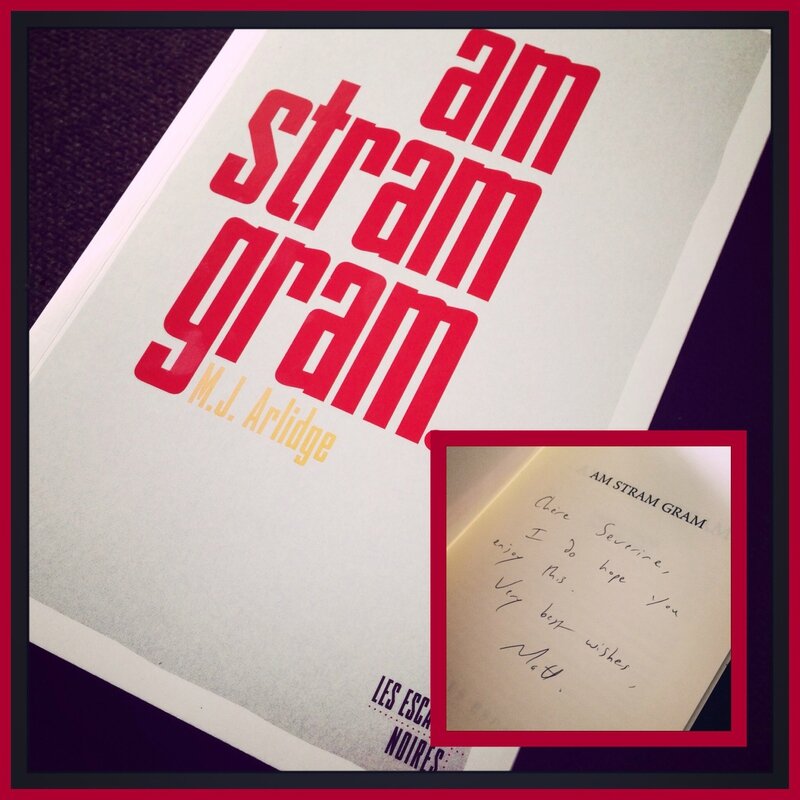 am
stram
gram.
M.J. Arlidge
LES ESCA
NOIRES
AM STRAM GRAM
Chere Severine,
I do hope you
enjoy this.
Very best wishes,
Matt.